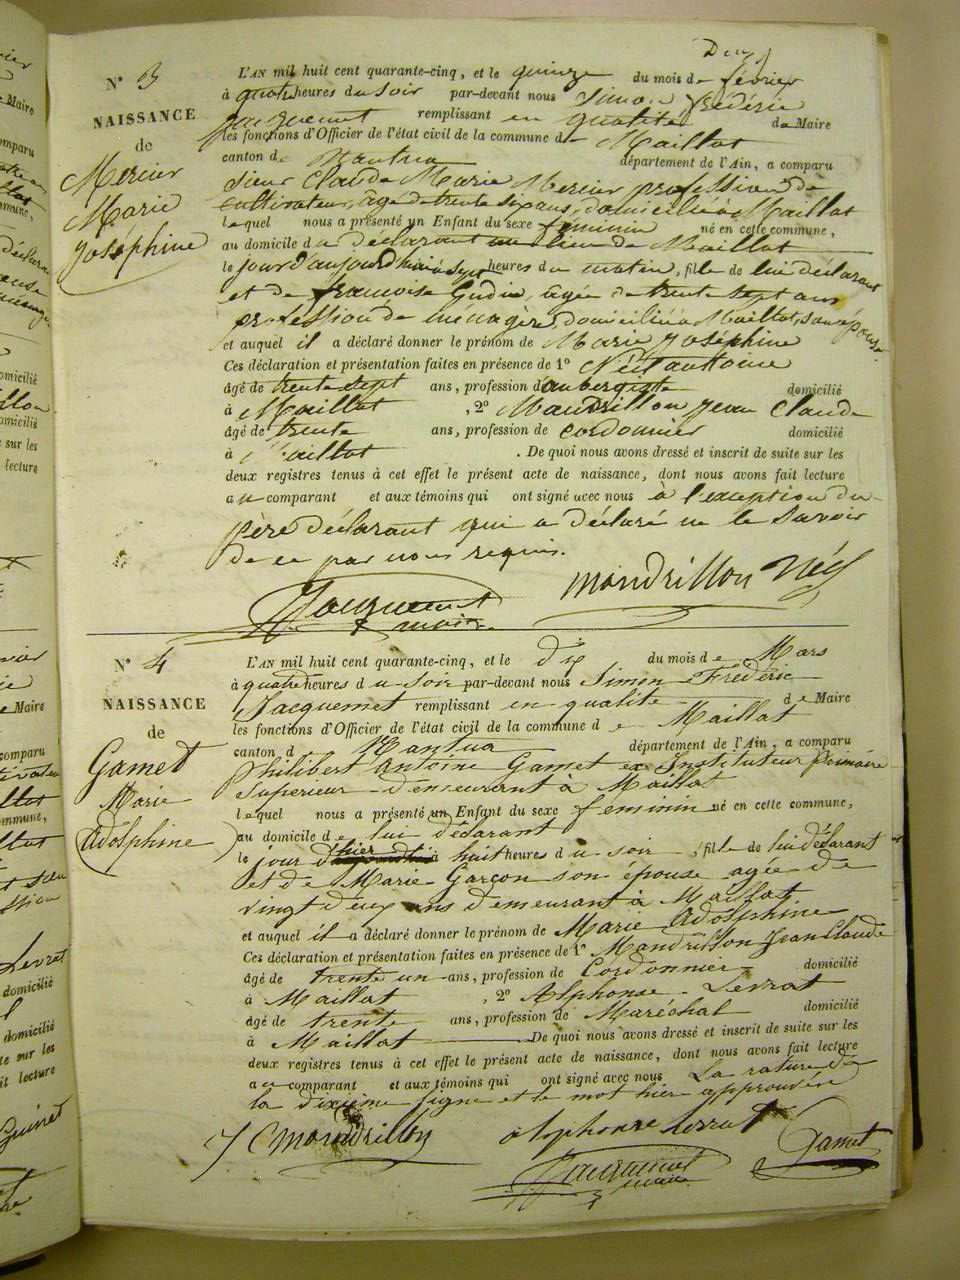 Deux
N° 3
NAISSANCE
de
Mercier
Marie
Joséphine
L'AN mil huit cent quarante-cinq, et le quinze du mois de février
à quatre heures du soir par-devant nous Simon Frédéric
Jacquemet remplissant en qualité de Maire
les fonctions d'Officier de l'état civil de la commune de Maillat
canton de Nantua département de l'Ain, a comparu
sieur Claude Marie Mercier profession de
cultivateur, âgé de trente six ans, domicilié à Maillat
lequel nous a présenté un Enfant du sexe féminin né en cette commune,
au domicile du déclarant au lieu de Maillat
le jour d'aujourd'hui à sept heures du matin, fille de lui déclarant
et de françoise Gudin, agée de trente sept ans
profession de ménagère, domiciliée à Maillat, son épouse
et auquel il a déclaré donner le prénom de Marie Joséphine
Ces déclaration et présentation faites en présence de 1° Néel antoine
âgé de trente sept ans, profession d'aubergiste domicilié
à Maillat, 2° Mandrillon Jean Claude
âgé de trente ans, profession de cordonnier domicilié
à Maillat. De quoi nous avons dressé et inscrit de suite sur les
deux registres tenus à cet effet le présent acte de naissance, dont nous avons fait lecture
au comparant et aux témoins qui ont signé avec nous à l'exception du
père déclarant qui a déclaré ne le savoir
de ce par nous requis.
Jacquemet mandrillon
maire
N° 4
NAISSANCE
de
Gamet
Marie
Adolphine
L'AN mil huit cent quarante-cinq, et le dix du mois de Mars
à quatre heures du soir par-devant nous Simon Frédéric
Jacquemet remplissant en qualité de Maire
les fonctions d'Officier de l'état civil de la commune de Maillat
canton d Nantua département de l'Ain, a comparu
Philibert Antoine Gamet ex Instituteur Primaire
Supérieur demeurant à Maillat
lequel nous a présenté un Enfant du sexe féminin né en cette commune,
au domicile de lui déclarant
le jour d'hier à huit heures du soir, fille de lui déclarant
et de Marie Garçon son épouse agée de
vingt deux ans demeurant à Maillat
et auquel il a déclaré donner le prénom de Marie Adolphine
Ces déclaration et présentation faites en présence de 1° Mandrillon Jean Claude
âgé de trente un ans, profession de Cordonnier domicilié
à Maillat, 2° Alphonse Levrat
âgé de trente ans, profession de Maréchal domicilié
à Maillat De quoi nous avons dressé et inscrit de suite sur les
deux registres tenus à cet effet le présent acte de naissance, dont nous avons fait lecture
au comparant et aux témoins qui ont signé avec nous La rature de
la dixième ligne et le mot hier approuvée
J C Mandrillon alphonse Levrat Gamet
Jacquemet
maire